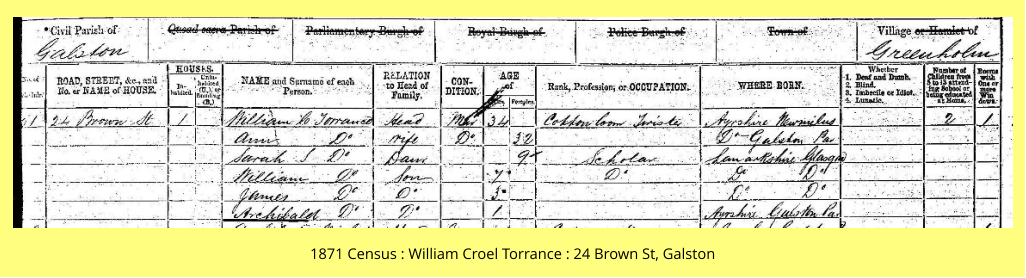 *Civil Parish of
Galston
Quoad sacra Parish of
Parliamentary Burgh of
Royal Burgh of
Police Burgh of
Town of
Village or Hamlet of
Greenholm
ROAD, STREET, &c., and No. or NAME of HOUSE.
HOUSES.
In-habited.
Unin-habited (U.), or Building (B.)
NAME and Surname of each Person.
RELATION to Head of Family.
CON-DITION.
AGE of
Females.
Rank, Profession, or OCCUPATION.
WHERE BORN.
Whether
1. Deaf and Dumb.
2. Blind.
3. Imbecile or Idiot.
4. Lunatic.
Number of Children from 5 to 13 attending School or being educated at Home.
Rooms with one or more Windows.
24 Brown St 1 William C Torrance Head Mar 34 Cotton loom Twister Ayrshire 2 1
Ann Do Wife Do 32 Do Galston Par
Sarah S Do Daur 9 Scholar Lanarkshire Glasgow
William Do Son 7 Do Do Do
James Do Do 3 Do Do
Archibald Do Do 1 Ayrshire Galston Par
1871 Census : William Croel Torrance : 24 Brown St, Galston